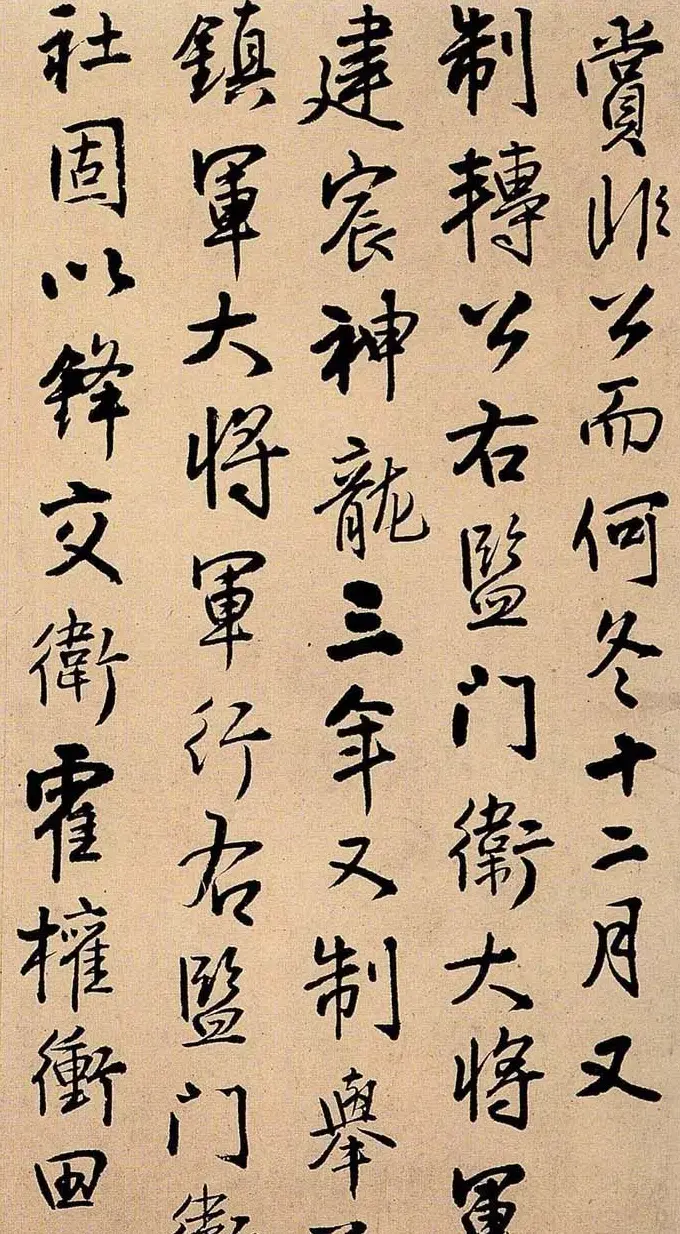 賞非公而何冬十二月又
制轉公右監門衛大將軍
建宸神龍三年又制舉
鎮軍大將軍行右監門衛
社固以鋒交衛霍權衝田